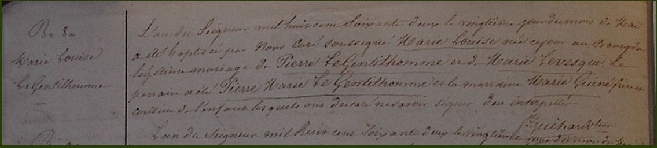 B. De
Marie Louise
Le Gentilhomme
L'an du Seigneur mil huit cent Soixante deux le vingtieme jour du mois de Mai
a été baptisée par Nous Curé soussigné Marie Louise née ce jour au Bourg du
légitime mariage de Pierre LeGentilhomme et de Marie Levesque Le
parrain a été Pierre Marie Le Gentilhomme et la marraine Marie
de l'enfant lesquels ont déclaré ne savoir signer
L'an du Seigneur mil huit cent Soixante deux le vingtieme jour du mois de